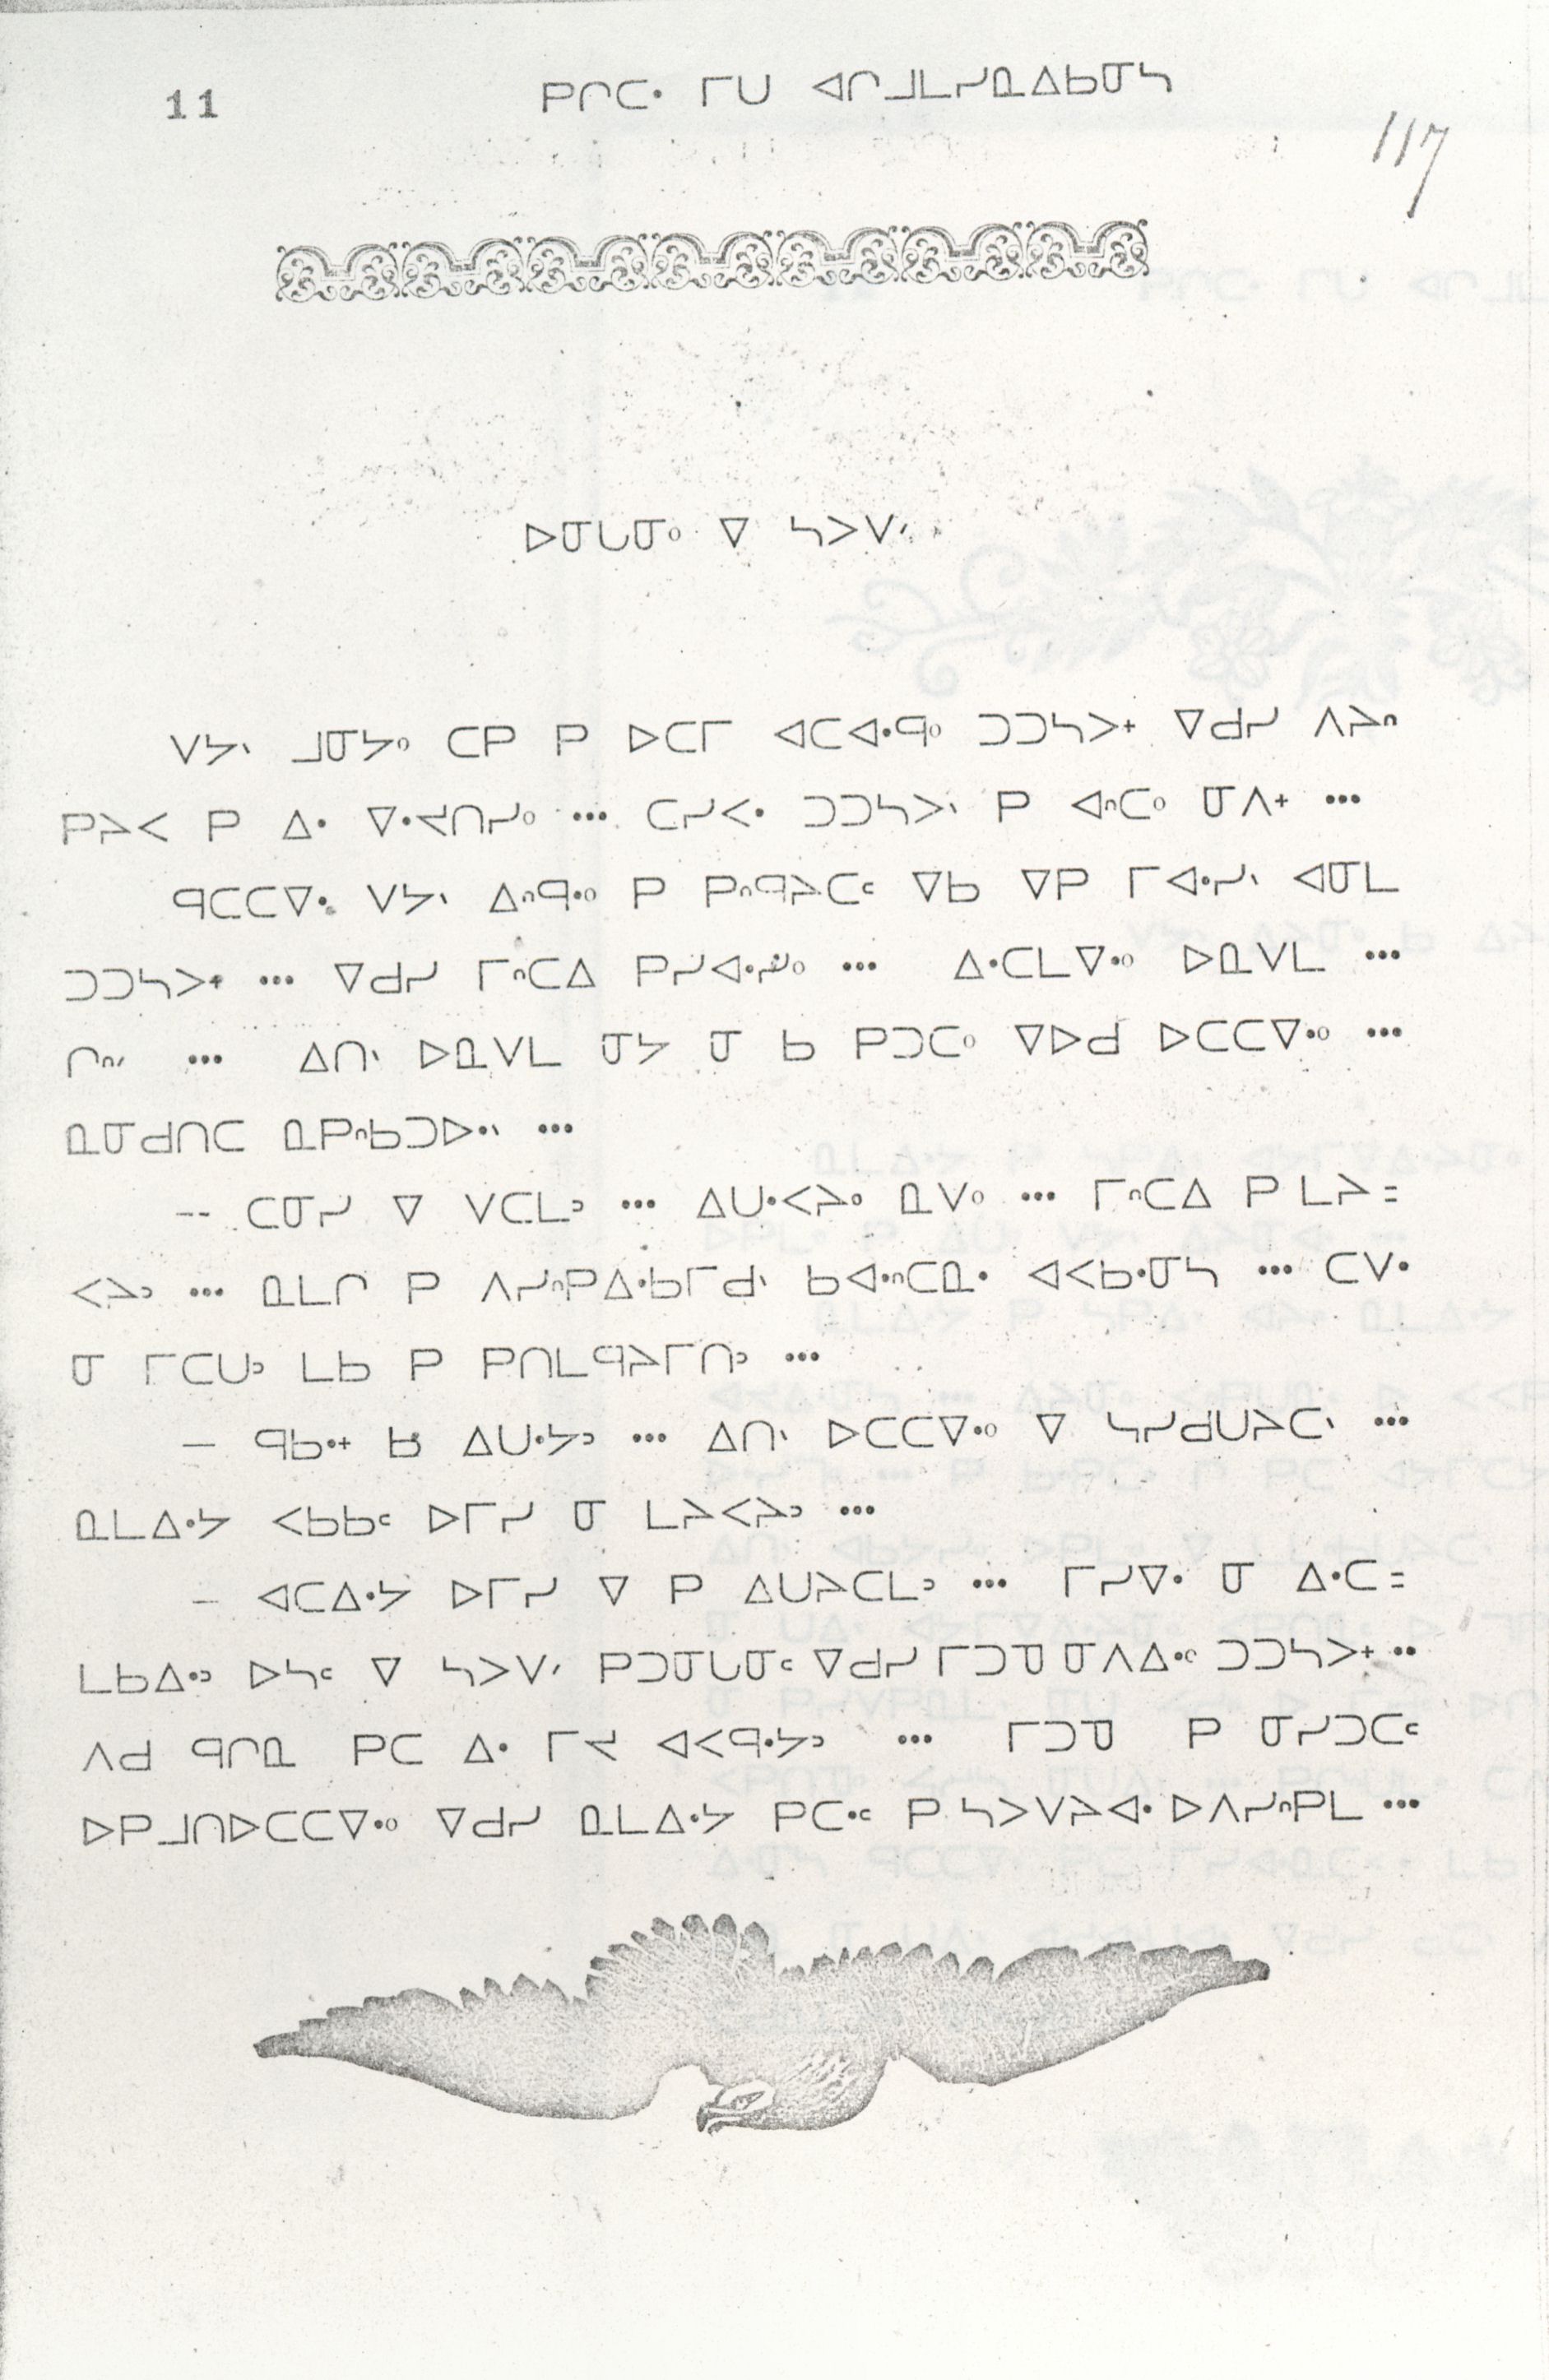 11 ᑭᒋᑕᐧ ᒥᑌ ᐊᒋᒧᒪᓯᓇᐃᑲᓂᓴ
117
ᐅᓂᒐᓂᐤ ᐁ ᓴᐳᐯᐟ
ᐯᔭᐠ ᒧᓂᔭᐤ ᑕᑭ ᑭ ᐅᑕᒥ ᐊᑕᐊᐧᑫᐤ ᑐᑐᓴᐳᐩ ᐁᑯᓯ ᐱᔨᐢ
ᑭᔨᐸ ᑭ ᐃᐧ ᐁᐧᔪᑎᓯᐤ ... ᑕᓯᐸᐧ ᑐᑐᓴᐳᐠ ᑭ ᐊᐢᑕᐤ ᓂᐱᐩ ...
ᑫᑕᑕᐁᐧ ᐯᔭᐠ ᐃᐢᑫᐧᐤ ᑭ ᑭᐢᑫᔨᑕᒼ ᐁᑲ ᐁᑭ ᒥᐊᐧᓯᐠ ᐊᓂᒪ
ᑐᑐᓴᐳᐩ ... ᐁᑯᓯ ᒥᐢᑕᐃ ᑭᓯᐊᐧᓯᐤ ... ᐃᐧᑕᒪᐁᐧᐤ ᐅᓇᐯᒪ ...
ᒋᐢᐟ ... ᐃᑎᐠ ᐅᓇᐯᒪ ᓂᔭ ᓂ ᑲ ᑭᑐᑕᐤ ᐁᐅᑯ ᐅᑕᑕᐁᐧᐤ ...
ᓇᓂᑯᑎᑕ ᓇᑭᐢᑲᑐᐅᐧᐠ ...
-- ᑕᓂᓯ ᐁ ᐯᑕᒪᐣ ... ᐃᑌᐧᐸᔨᐤ ᓇᐯᐤ ... ᒥᐢᑕᐃ ᑭ ᒪᔨ =
ᐸᔨᐣ ... ᓇᒪᒋ ᑭ ᐱᓯᐢᑭᐃᐧᑲᒥᑯᐠ ᑲᐊᐧᐢᑕᓇᐧ ᐊᐸᑲᐧᓂᓴ ... ᑕᐯᐧ
ᓂ ᒥᑕᑌᐣ ᒪᑲ ᑭ ᑭᑎᒪᑫᔨᒥᑎᐣ ...
— ᑫᑲᐧᐩ ᑲ ᐃᑌᐧᔭᐣ ... ᐃᑎᐠ ᐅᑕᑕᐁᐧᐤ ᐁ ᓴᓯᑯᑌᔨᑕᐠ ...
ᓇᒪᐃᐧᔭ ᐸᑲᑲᒼ ᐅᒥᓯ ᓂ ᒪᔨᐸᔨᐣ ...
— ᐊᑕᐃᐧᔭ ᐅᒥᓯ ᐁ ᑭ ᐃᑌᔨᑕᒪᐣ ... ᒥᓯᐁᐧ ᓂ ᐃᐧᑕ =
ᒪᑲᐃᐧᐣ ᐅᓴᒼ ᐁ ᓴᐳᐯᐟ ᑭᑐᓂᒐᓂᒼ ᐁᑯᓯ ᒥᑐᓀ ᓂᐱᐃᐧᐤ ᑐᑐᓴᐳᐩ ..
ᐱᑯ ᑫᒋᓇ ᑭᑕ ᐃᐧ ᒥᔪ ᐊᐸᑫᐧᔭᐣ ... ᒥᑐᓀ ᑭ ᓂᓯᑐᑕᒼ
ᐅᑭᒧᑎᐅᑕᑕᐁᐧᐤ ᐁᑯᓯ ᓇᒪᐃᐧᔭ ᑭᑕᐧᒼ ᑭ ᓴᐳᐯᔨᐊᐧ ᐅᐱᓯᐢᑭᒪ ...